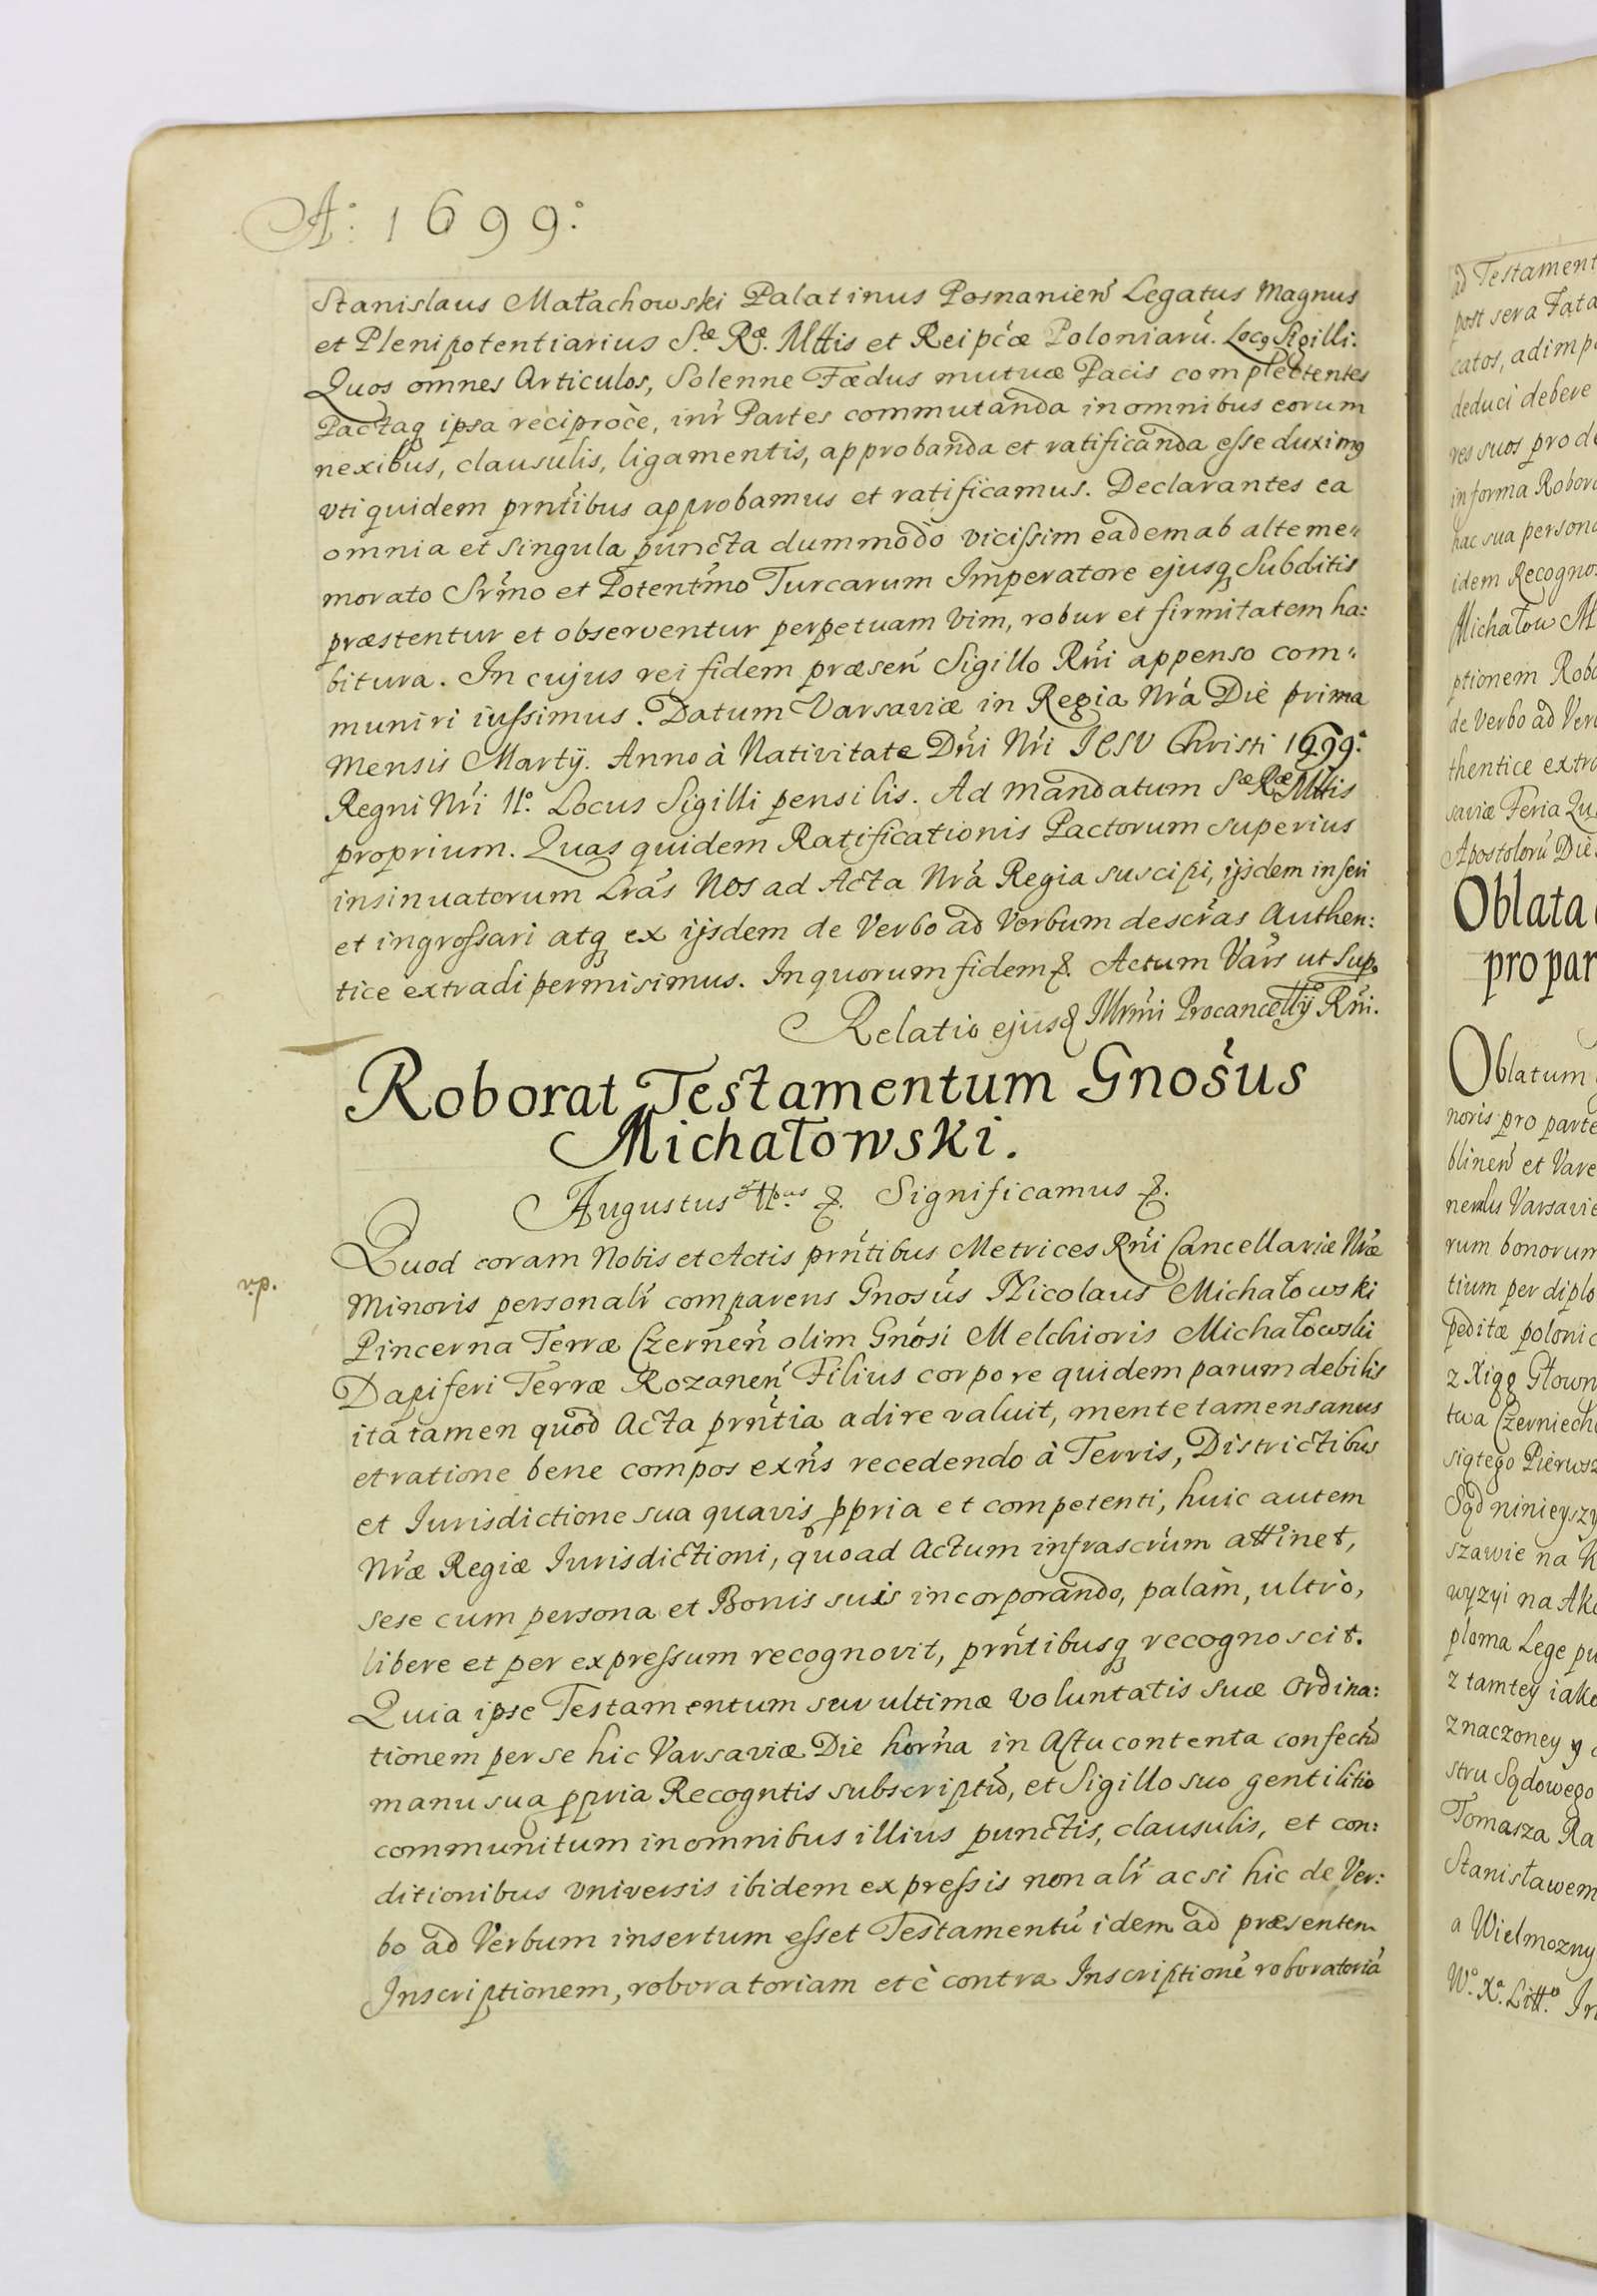 A.° 1699.°
Stanislaus Małachowski Palatinus Posnanien̄ Legatus Magnus
et Plenipotentiarius S.æ R.æ Mttis et Reipćæ Poloniarũ. Locq Sigilli.
Quos omnes Articulos, Solenne Fædus mutuæ Pacis complectentes
Pactaq ipsa reciprocè, inr̃ Partes commutanda in omnibus eorum
nexibus, clausulis, ligamentis, approbanda et ratificanda esse duximq
vti quidem prñtibus approbamus et ratificamus. Declarantes ea
omnia et singula puncta dummodò vicissim eadem ab alte me„
morato Sr̃mo et Potent̃mo Turcarum Imperatore ejusq Subditis
præstentur et observentur perpetuam vim, robur et firmitatem ha:
bitura. In cujus rei fidem præsen̄ Sigillo Rñi appenso com„
muniri iussimus. Datum Varsaviæ in Regia Nrã Die prima
Mensis Martÿ. Anno à Nativitate Dñi Nrĩ JESU Christi 1699.°
Regni Nrĩ II.° Locus Sigilli pensilis. Ad mandatum Sæ Ræ Mttis
proprium. Quas quidem Ratificationis Pactorum superius
insinuatorum Lrãs Nos ad Acta Nrã Regia suscipi, ijsdem inseri
et ingrossari atq ex ijsdem de Verbo ad Verbum descr̃as Authen:
tice extradi permisimus. In quorum fidem &. Actum Vars̃ ut sup.
Relatio ejusd Illr̃mi Procancellÿ Rñi.
Roborat Testamentum Gnos̃us
Michałowski.
Augustus IIdus &. Significamus &.
Quod coram Nobis et Actis prñtibus Metrices Rñi Cancellariæ Nrã̃æ
vp.
Minoris personalr̃ comparens Gnosũs Nicolaus Michałowski
Pincerna Terræ Czernen̄ olim Gnõsi Melchioris Michałowski
Dapiferi Terræ Rozanen̄ Filius corpore quidem parum debilis
ita tamen quod Acta prñtia adire valuit, mente tamen sanus
et ratione bene compos exñs recedendo à Terris, Districtibus
et Iurisdictione sua quavis ppria et competenti, huic autem
Nrã̃æ Regiæ Iurisdictioni, quoad Actum infrascrũm attinet,
sese cum persona et Bonis suis incorporando, palàm, ultrò,
libere et per expressum recognovit, prñtibusq recognoscit.
Quia ipse Testamentum seu ultimæ voluntatis suæ ordina:
tionem per se hic Varsaviæ Die horña in Actu contenta confectũ
manu sua ppria Recogntis subscriptũ, et Sigillo suo gentilitio
communitum in omnibus illius punctis, clausulis, et con:
ditionibus vniversis ibidem expressis non alr̃ ac si hic de Ver:
bo ad Verbum insertum esset Testamentũ idem ad præsentem
Inscriptionem, roboratoriam et è contra Inscriptionẽ roboratoriã
ad Testament
post sera Fata
catos, adimp
deduci debere
res suos pro de
in forma Robor
hac sua person
idem Recogno
Michałow M
ptionem Robo
de Verbo ad Ver
thentice extra
saviæ Feria Qu
Apostolorũ Die
Oblata
pro par
Oblatum
noris pro parte
blinen̄ et Vare
neralis Varsavie
rum bonorum
tium per diplo
peditæ polonic
z Xiąg Głown
twa Czerniech
siątego Pierwsz
Sąd ninieyszy
szawie na
wyzyi na Ak
ploma Lege pu
z tamtey iako
znaczoney y
stru Sądowego
Tomasza Ra
Stanisławem
a Wielmozny
W.° X.° Litt.° In